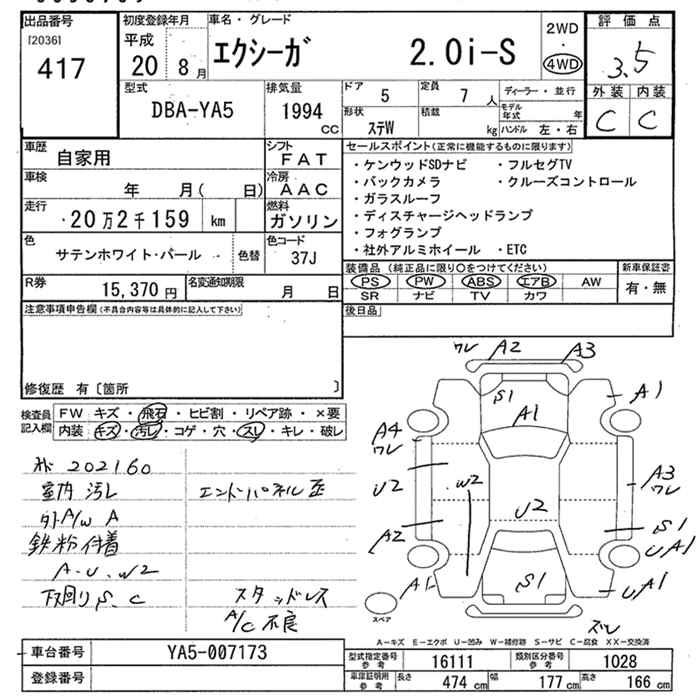 出品番号
[2036]
417
初度登録年月
平成
20 8月
車名・グレード
エクシーガ 2.0i-S
2WD
・
4WD
評価点
3.5
外装 内装
C C
型式
DBA-YA5
排気量
1994
CC
ドア 5
定員 7 人
形状 ステW
積載 kg
ディーラー・並行
モデル年式 年
ハンドル 左・右
車歴
自家用
シフト
FAT
車検
年 月( 日)
冷房
AAC
走行
20万2千159 km
燃料
ガソリン
色
サテンホワイト・パール
色替
色コード
37J
R券
15,370 円
名変通知期限
月 日
セールスポイント(正常に機能するものに限ります)
・ケンウッドSDナビ ・フルセグTV
・バックカメラ ・クルーズコントロール
・ガラスルーフ
・ディスチャージヘッドランプ
・フォグランプ
・社外アルミホイール ・ETC
装備品 (純正品に限り○をつけてください)
新車保証書
PS PW ABS エアB AW
SR ナビ TV カワ
有・無
後日品
注意事項申告欄(不具合内容等は具体的に記入して下さい)
修復歴 有〔箇所 〕
検査員記入欄
FW キズ・飛石・ヒビ割・リペア跡・×要
内装 キズ・汚レ・コゲ・穴・スレ・キレ・破レ
202160
室内 汚レ
エンドパネル歪
外A/W A
鉄粉付着
A・U・W2
下回り S、C
スタッドレス
A/C 不良
ワレ A2 A3
S1
A1
A1
A4
ワレ
U2
W2
A3
ワレ
U2
A2
S1
UA1
A1
S1
UA1
スペア
スレ
A-キズ E-エクボ U-凹み W-補修跡 S-サビ C-腐食 XX-交換済
車台番号 YA5-007173
登録番号
型式指定番号参考 16111
類別区分番号参考 1028
車庫証明用参考
長さ 474 cm
幅 177 cm
高さ 166 cm